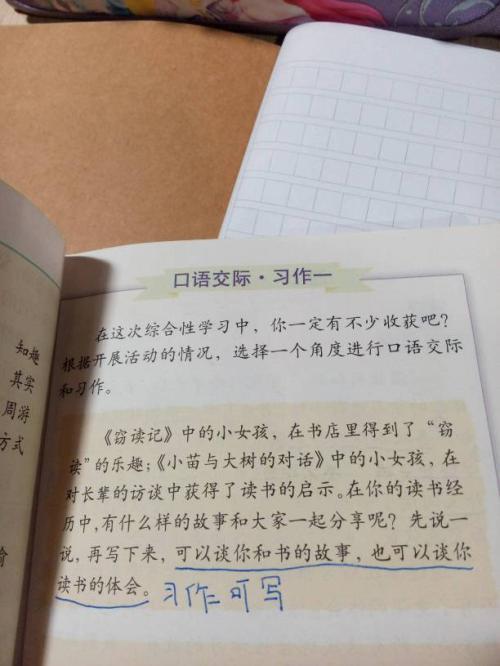 口语交际·习作一
在这次综合性学习中，你一定有不少收获吧？
根据开展活动的情况，选择一个角度进行口语交际
和习作。
《窃读记》中的小女孩，在书店里得到了“窃
读”的乐趣；《小苗与大树的对话》中的小女孩，在
对长辈的访谈中获得了读书的启示。在你的读书经
历中，有什么样的故事和大家一起分享呢？先说一
说，再写下来，可以谈你和书的故事，也可以谈你
读书的体会。习作二可写
知趣
其实
周游
方式